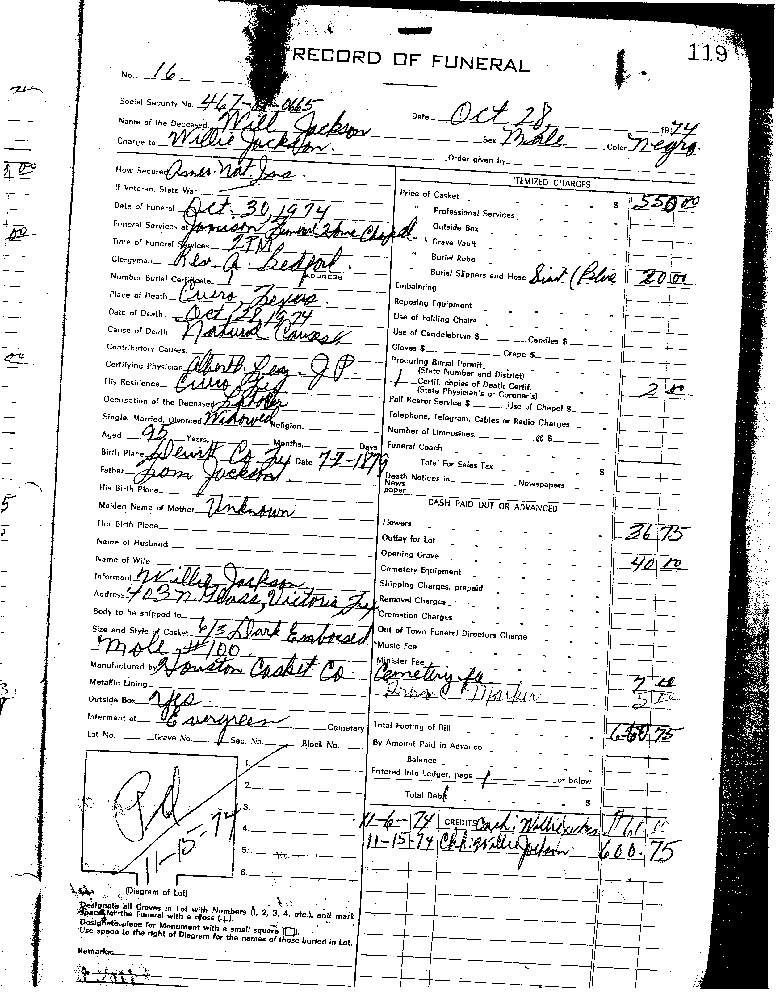 119
RECORD OF FUNERAL
No. 16
Social Security No. 467- -0665
Date Oct 28, 1974
Name of the Deceased Will Jackson
Sex Male Color Negro
Charge to Willie Jackson
Order given by
How Secured Amer. Nat. Ins
If Veteran, State War
Date of Funeral Oct. 30, 1974
Funeral Services at Funeral Home Chapel
Time of Funeral Services 2 PM
Clergyman Rev. A. Bedford
Number Burial Certificate ADDRESS
Place of Death Cuero, Texas
Date of Death Oct, 28, 1974
Cause of Death Natural Causes
Contributory Causes
Certifying Physician Albert Ley - J P
His Residence Cuero Tex
Occupation of the Deceased Laborer
Single, Married, Divorced Widowed Religion
Aged 95 Years, Months, Days
Birth Place Dewitt Co Tex Date 7-7-1879
Father Jackson
His Birth Place
Maiden Name of Mother Unknown
Her Birth Place
Name of Husband
Name of Wife
Informant Willie Jackson
Address 403 N Glass, Victoria Tex
Body to be shipped to
Size and Style of Casket 6/3 Dark Embossed
Mole #100
Manufactured by Houston Casket Co
Metallic Lining
Outside Box Yes
Interment at Evergreen Cemetery
Lot No. Grave No. Sec. No. Block No.
1.
2.
3.
4.
5.
6.
Pd
11-15-74
(Diagram of Lot)
Designate all Graves in Lot with Numbers (1, 2, 3, 4, etc.), and mark
space for the Funeral with a cross (+).
Designate place for Monument with a small square
Use space to the right of Diagram for the names of those buried in Lot.
Remarks
ITEMIZED CHARGES
Price of Casket $ 550 00
" Professional Services
" Outside Box
" Grave Vault
" Burial Robe
" Burial Slippers and Hose Suit (Blue 20 00
Embalming
Reposing Equipment
Use of Folding Chairs
Use of Candelabrum $ Candles $
Gloves $ Crepe $
Procuring Burial Permit
(State Number and District)
1 Certif. copies of Death Certif.
(State Physician's or Coroner's) 2 00
Pall Bearer Service $ Use of Chapel $
Telephone, Telegram, Cables or Radio Charges
Number of Limousines @ $
Funeral Coach
Total For Sales Tax $
Death Notices in Newspapers
News
paper
CASH PAID OUT OR ADVANCED
Flowers 36 75
Outlay for Lot
Opening Grave 40 00
Cemetery Equipment
Shipping Charges, prepaid
Removal Charges
Cremation Charges
Out of Town Funeral Directors Charge
Music Fee
Minister Fee
Cemetery fee 7 00
Marker 5 00
Total Footing of Bill 660 75
By Amount Paid in Advance
Balance
Entered into Ledger, page or below
Total Debit $
11-6-74 CREDITS Cash: Willie
11-15-74 Chk: Willie Jackson 600.75